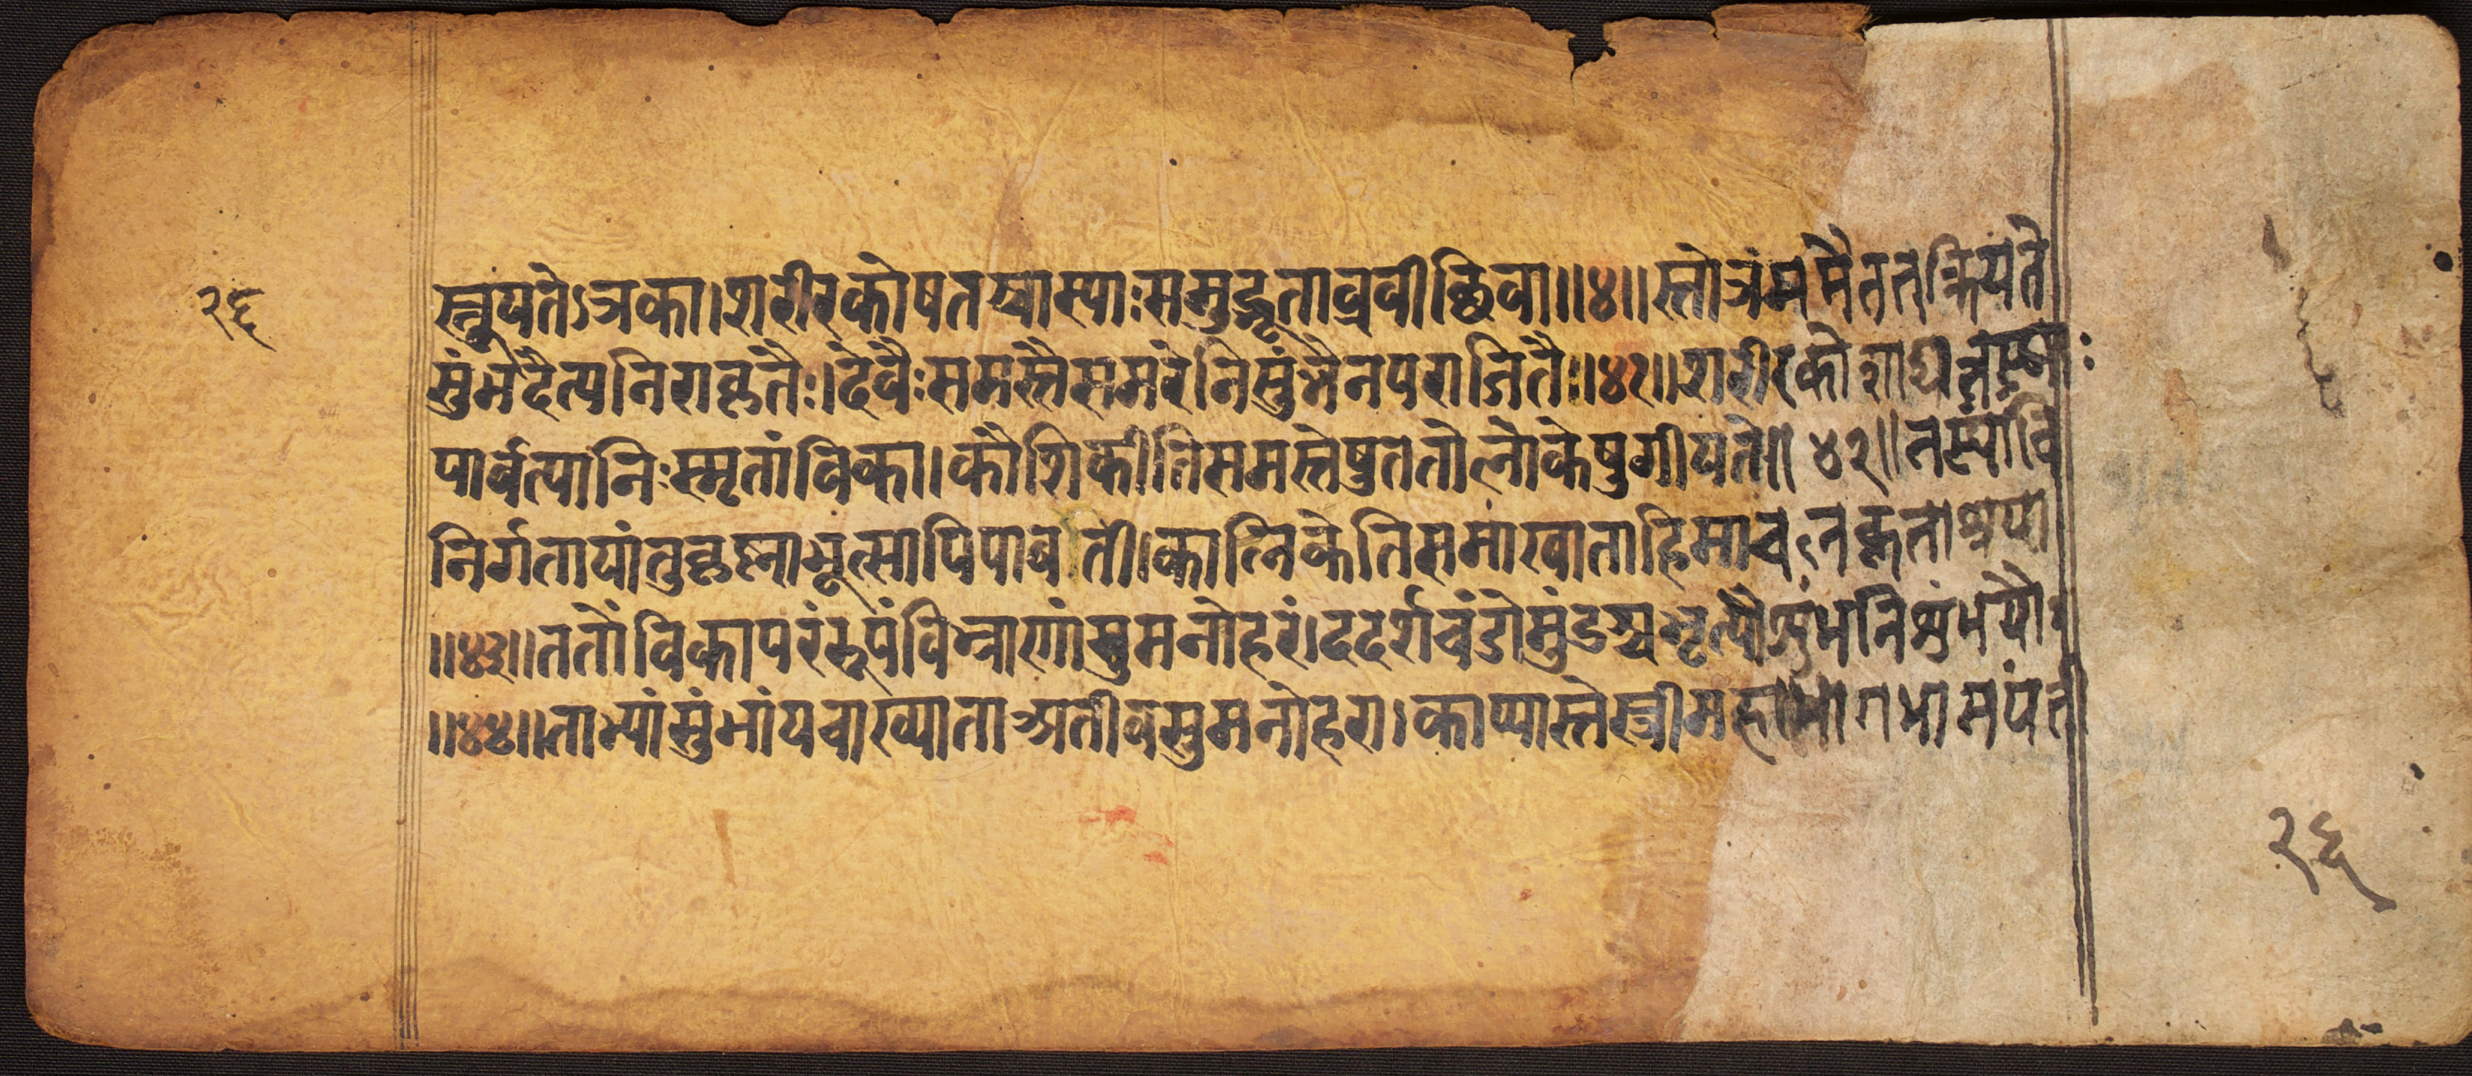 २६
स्तूयतेऽत्रका।शरीरकोषतश्चास्याःसमुद्भूताव्रवीच्छिवा॥॥४॥॥स्तोत्रंममैततत्क्रियते
सुंभदैत्यनिराकृतैः।देवैःसमस्तैसमरेनिसुंभेनपराजितैः॥४१॥शरीरकोशाद्य
पार्वत्यानिःस्मृतांविका।कौशिकीतिसमस्तेषुततोलोकेषुगीयते॥४२॥तस्यांवि
निर्गतायांतुकृष्नाभूत्सापिपार्वती।कालिकेतिसमाख्याताहिमाचलकृताश्रया
॥४३॥ततोंविकापरंरूपंविभ्राणांसुमनोहरं।ददर्शचंडोमुंडश्चभृत्यौशुंभनिशुंभयो
॥४४॥ताभ्यांसुंभांयचाख्याताअतीवसुमनोहरा।काप्यास्तेस्त्रीमहा
२६